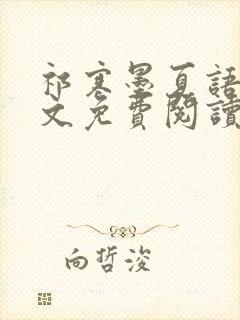 祁寒墨夏語
文免費閱讀
向哲浚